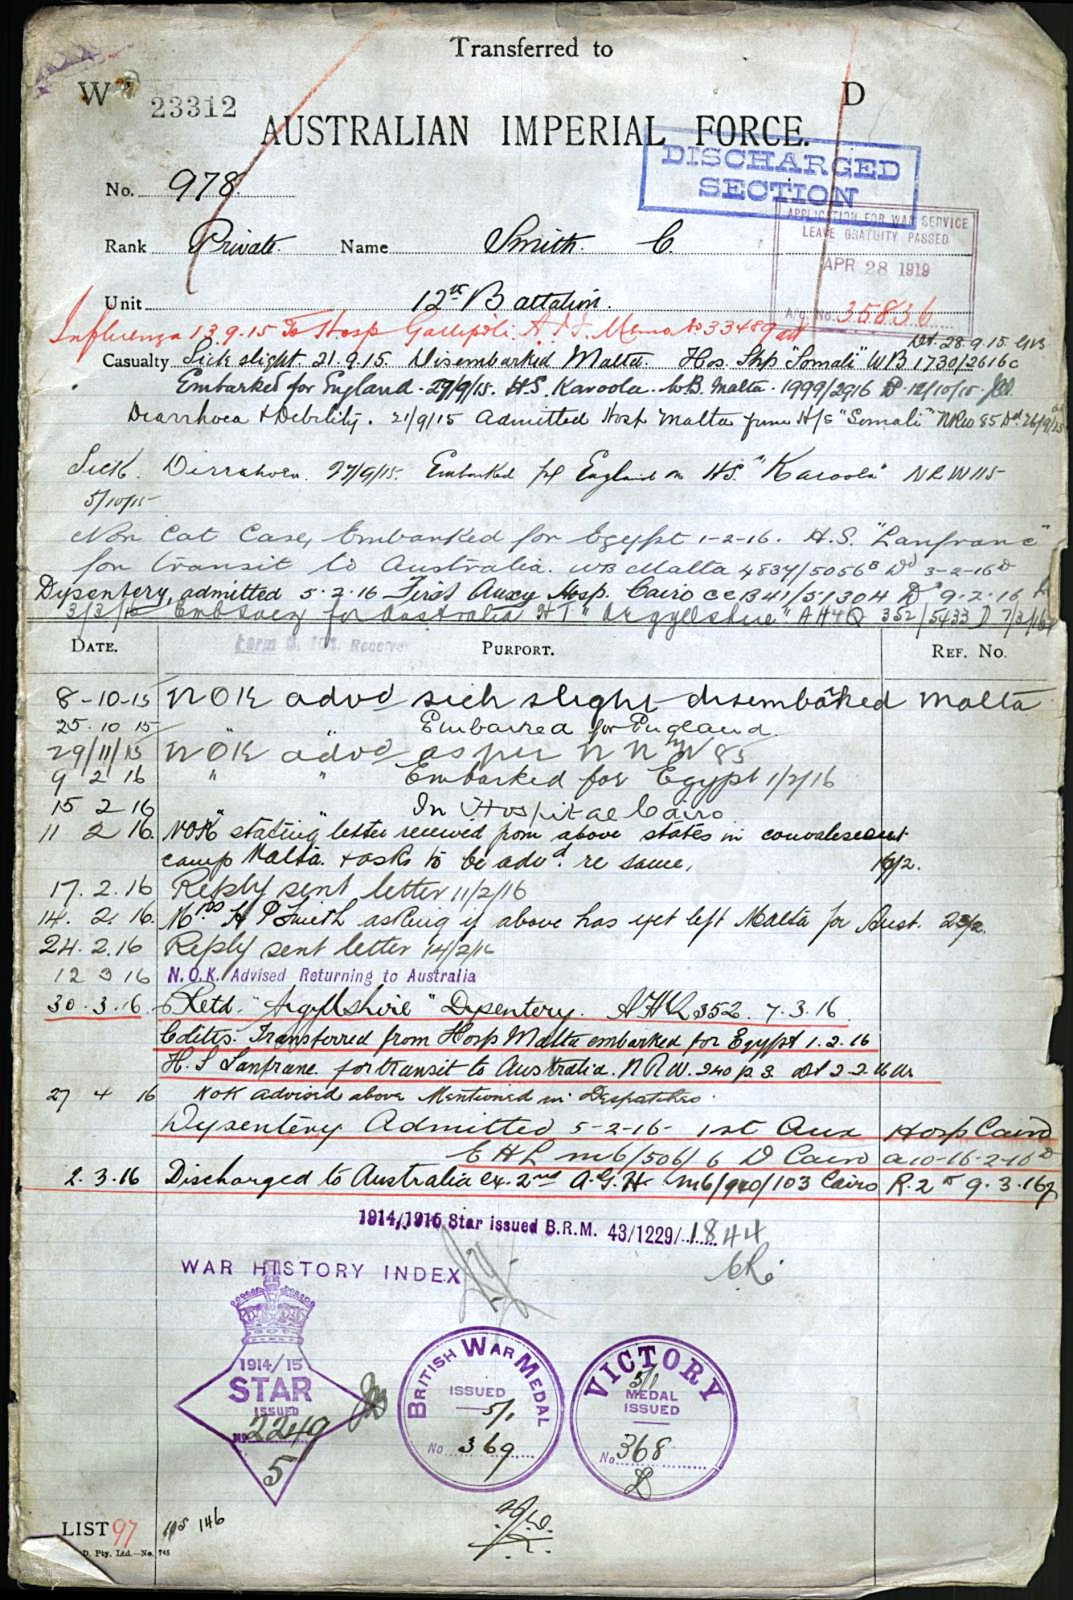 Transferred to
W D
23312
AUSTRALIAN IMPERIAL FORCE.
DISCHARGED
SECTION
No. 978
APPLICATION FOR WAR SERVICE
LEAVE GRATUITY PASSED
APR 28 1919
Rank Private Name Smith C.
Unit 12th Battalion.
35836
Influenza 13.9.15 To Hosp Gallipoli. A.I.F. Memo No 33489
Dt. 28.9.15
Casualty Sick slight 21.9.15. Disembarked Malta. Hos. Shp "Somali" WB 1730/2616c
Embarked for England. 27/9/15. H.S. Karoola. WB. Malta. 1999/2916 D 12/10/15
Diarrhoea & Debility. 21/9/15 Admitted Hosp Malta from H/S "Somali"
Sick. 27/9/15. Embarked for England on H.S. "Karoola"
5/10/15
Non Cot Case, Embarked for Egypt 1-2-16. H.S. "Lanfranc"
for transit to Australia. WB Malta 4837/5056B Dd 3-2-16
Dysentery, admitted 5.2.16 First Auxy Hosp. Cairo D 9.2.16
3/3/16 for Australia HT "Argyllshire" 352/5433 D 7/3/16
DATE. PURPORT. REF. NO.
8-10-15 NOK advd sick slight disembarked Malta
25.10.15 " " Embarked for England.
29/11/15 NOK advd as per 85
9 2 16 " " Embarked for Egypt 1/2/16
15 2 16 " " In Hospital Cairo
11 2 16. NOK stating letter received from above states in convalescent
camp Malta. & asks to be advd. re same.
17.2.16 Reply sent letter 11/2/16
14. 2 16. Mrs H P Smith asking if above has yet left Malta for Aust.
24.2.16 Reply sent letter 14/2/16
12 3 16 N.O.K. Advised Returning to Australia
30.3.16 Retd. "Argyllshire" Dysentery. 352. 7.3.16
Transferred from Hosp Malta embarked for Egypt 1.2.16
H.S Lanfranc for transit to Australia.
27 4 16 NOK advised above Mentioned in Despatches.
Dysentery Admitted 5-2-16- 1st Aux Hosp Cairo
2.3.16 Discharged to Australia ex. 2nd A.G.H. Cairo 9.3.16
1914/1915 Star issued B.R.M. 43/1229/ 1844
WAR HISTORY INDEX
1914/15
STAR
ISSUED
No 2249
5
BRITISH WAR MEDAL
ISSUED
5/1
No 369
VICTORY
5/1
MEDAL
ISSUED
No 368
LIST 97 146
D. Pty. Ltd.—No. 745